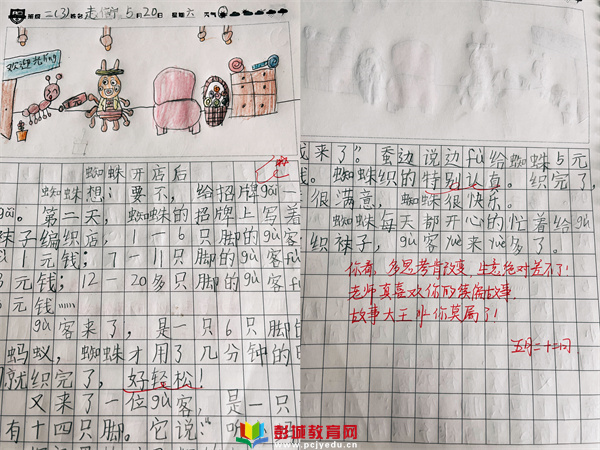 班级 二(3) 姓名 5月20日 星期六 天气
欢迎光lín
蜘蛛开店后
蜘蛛想:要不,给招牌gǎi一
gǎi。第二天,蜘蛛的招牌上写着
袜子编织店,1—6只脚的gù客
1元钱;7—11只脚的gù客fù
元钱;12—20多只脚的gù客
元钱……
gù客来了,是一只6只脚的
蚂蚁,蜘蛛才用了几分钟的
就织完了,好轻松!
又来了一位gù客,是一只
有十四只脚。它说:
我来了”。蚕边说边fù给蜘蛛5元
钱。蜘蛛织的特别认真。织完了,
很满意,蜘蛛很快乐。
蜘蛛每天都开心的忙着给gù
织袜子,gù客yuè来yuè多了。
你看,多思考肯改变,生意绝对差不了!
老师真喜欢你的续编故事
故事大王非你莫属了!
五月二十二日
彭城教育网
www.pcjyedu.cn